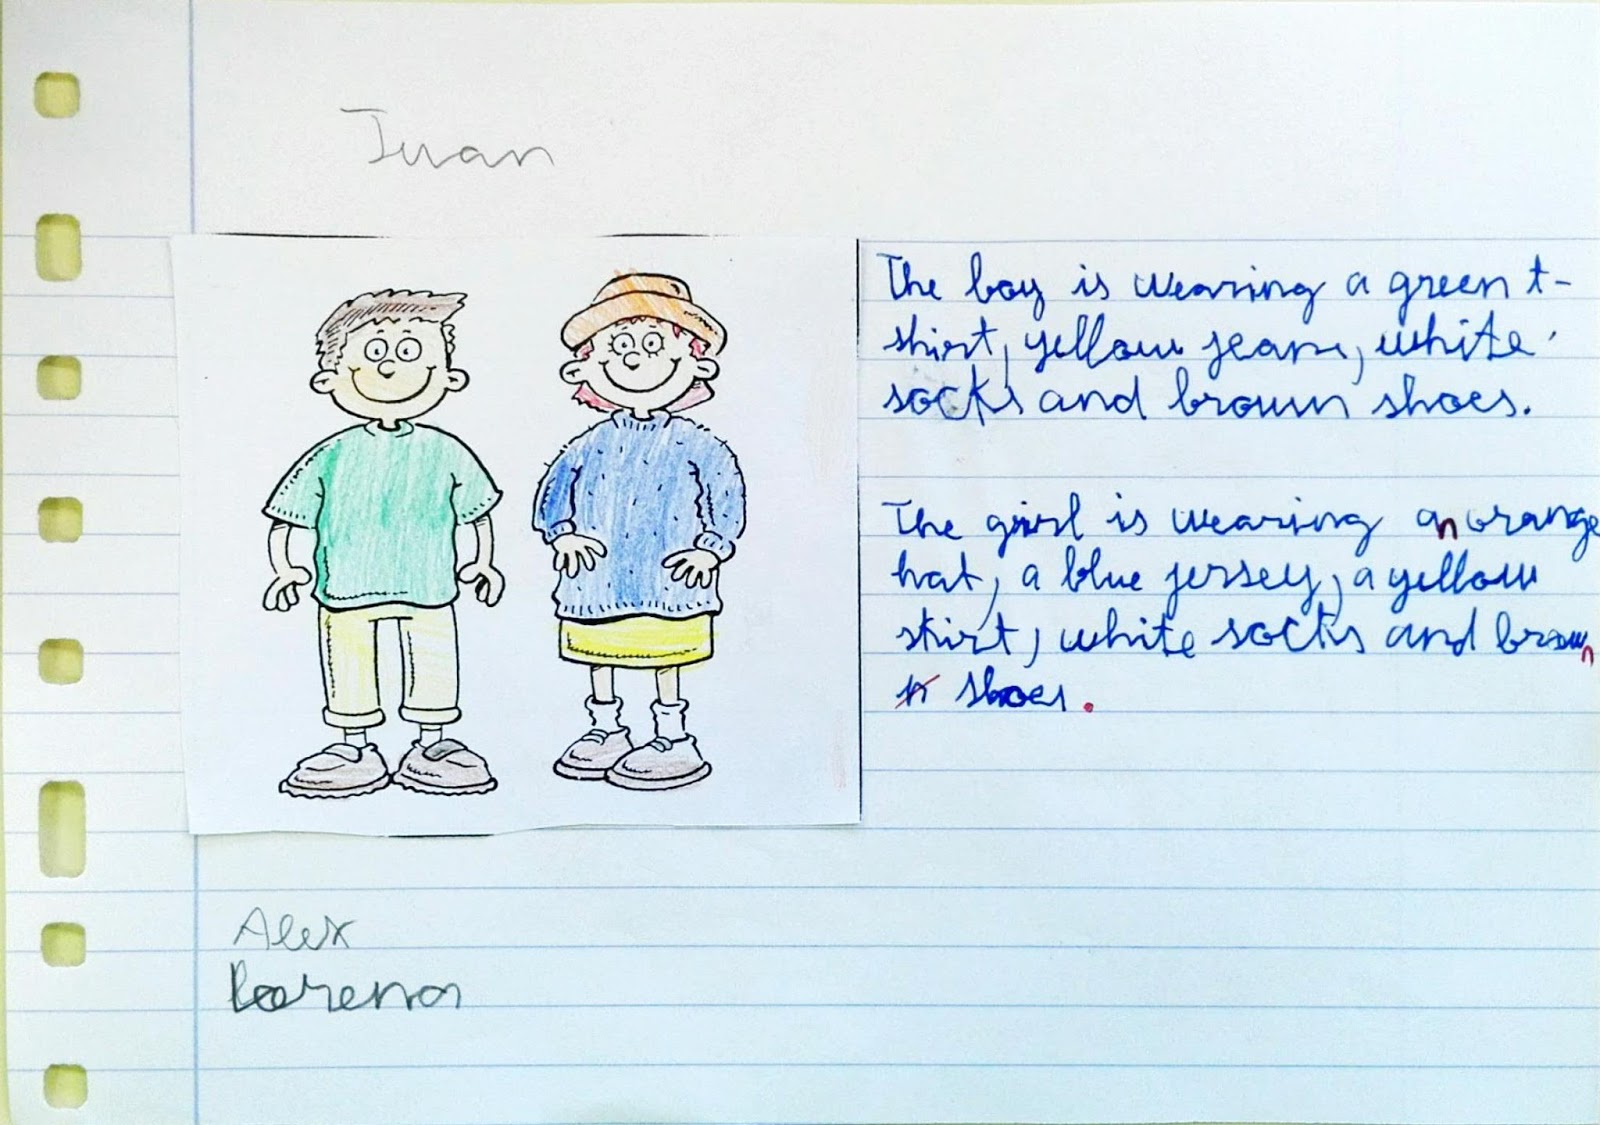 Juan
The boy is wearing a green t-
shirt, yellow jeans, white
socks and brown shoes.
The girl is wearing an orange
hat, a blue jersey, a yellow
skirt, white socks and brown
shoes.
Alex
Lorena